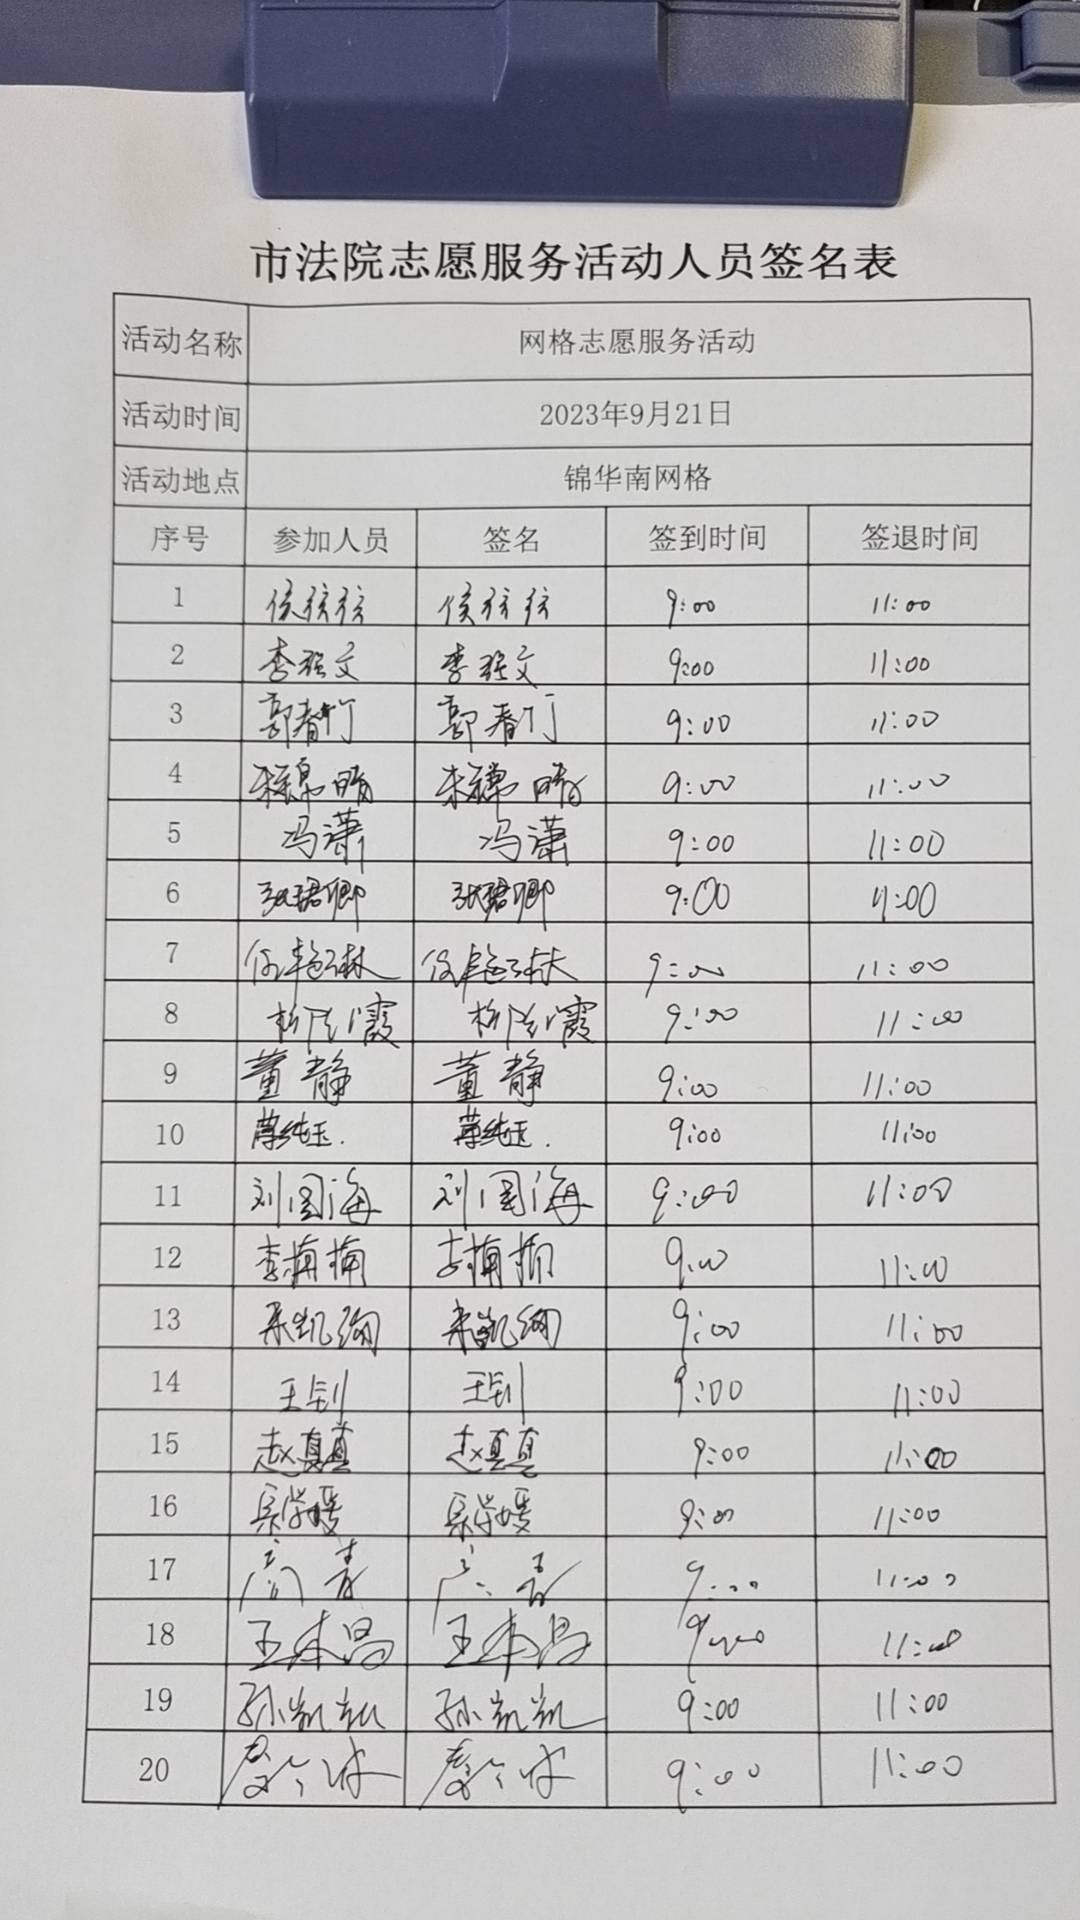 市法院志愿服务活动人员签名表
活动名称 网格志愿服务活动
活动时间 2023年9月21日
活动地点 锦华南网格
序号 参加人员 签名 签到时间 签退时间
1 侯 侯 9:00 11:00
2 李强文 李强文 9:00 11:00
3 郭春竹 郭春竹 9:00 11:00
4 晴 晴 9:00 11:00
5 冯潇 冯潇 9:00 11:00
6 张珺卿 张珺卿 9:00 11:00
7 何艳琳 何艳琳 9:00 11:00
8 霞 霞 9:00 11:00
9 董静 董静 9:00 11:00
10 纯玉. 纯玉. 9:00 11:00
11 刘国海 刘国海 9:00 11:00
12 李楠楠 李楠楠 9:00 11:00
13 凯 凯 9:00 11:00
14 王钊 王钊 9:00 11:00
15 赵真真 赵真真 9:00 11:00
16 学媛 学媛 9:00 11:00
17 青 青 9:00 11:00
18 王本昌 王本昌 9:00 11:00
19 孙凯凯 孙凯凯 9:00 11:00
20 9:00 11:00